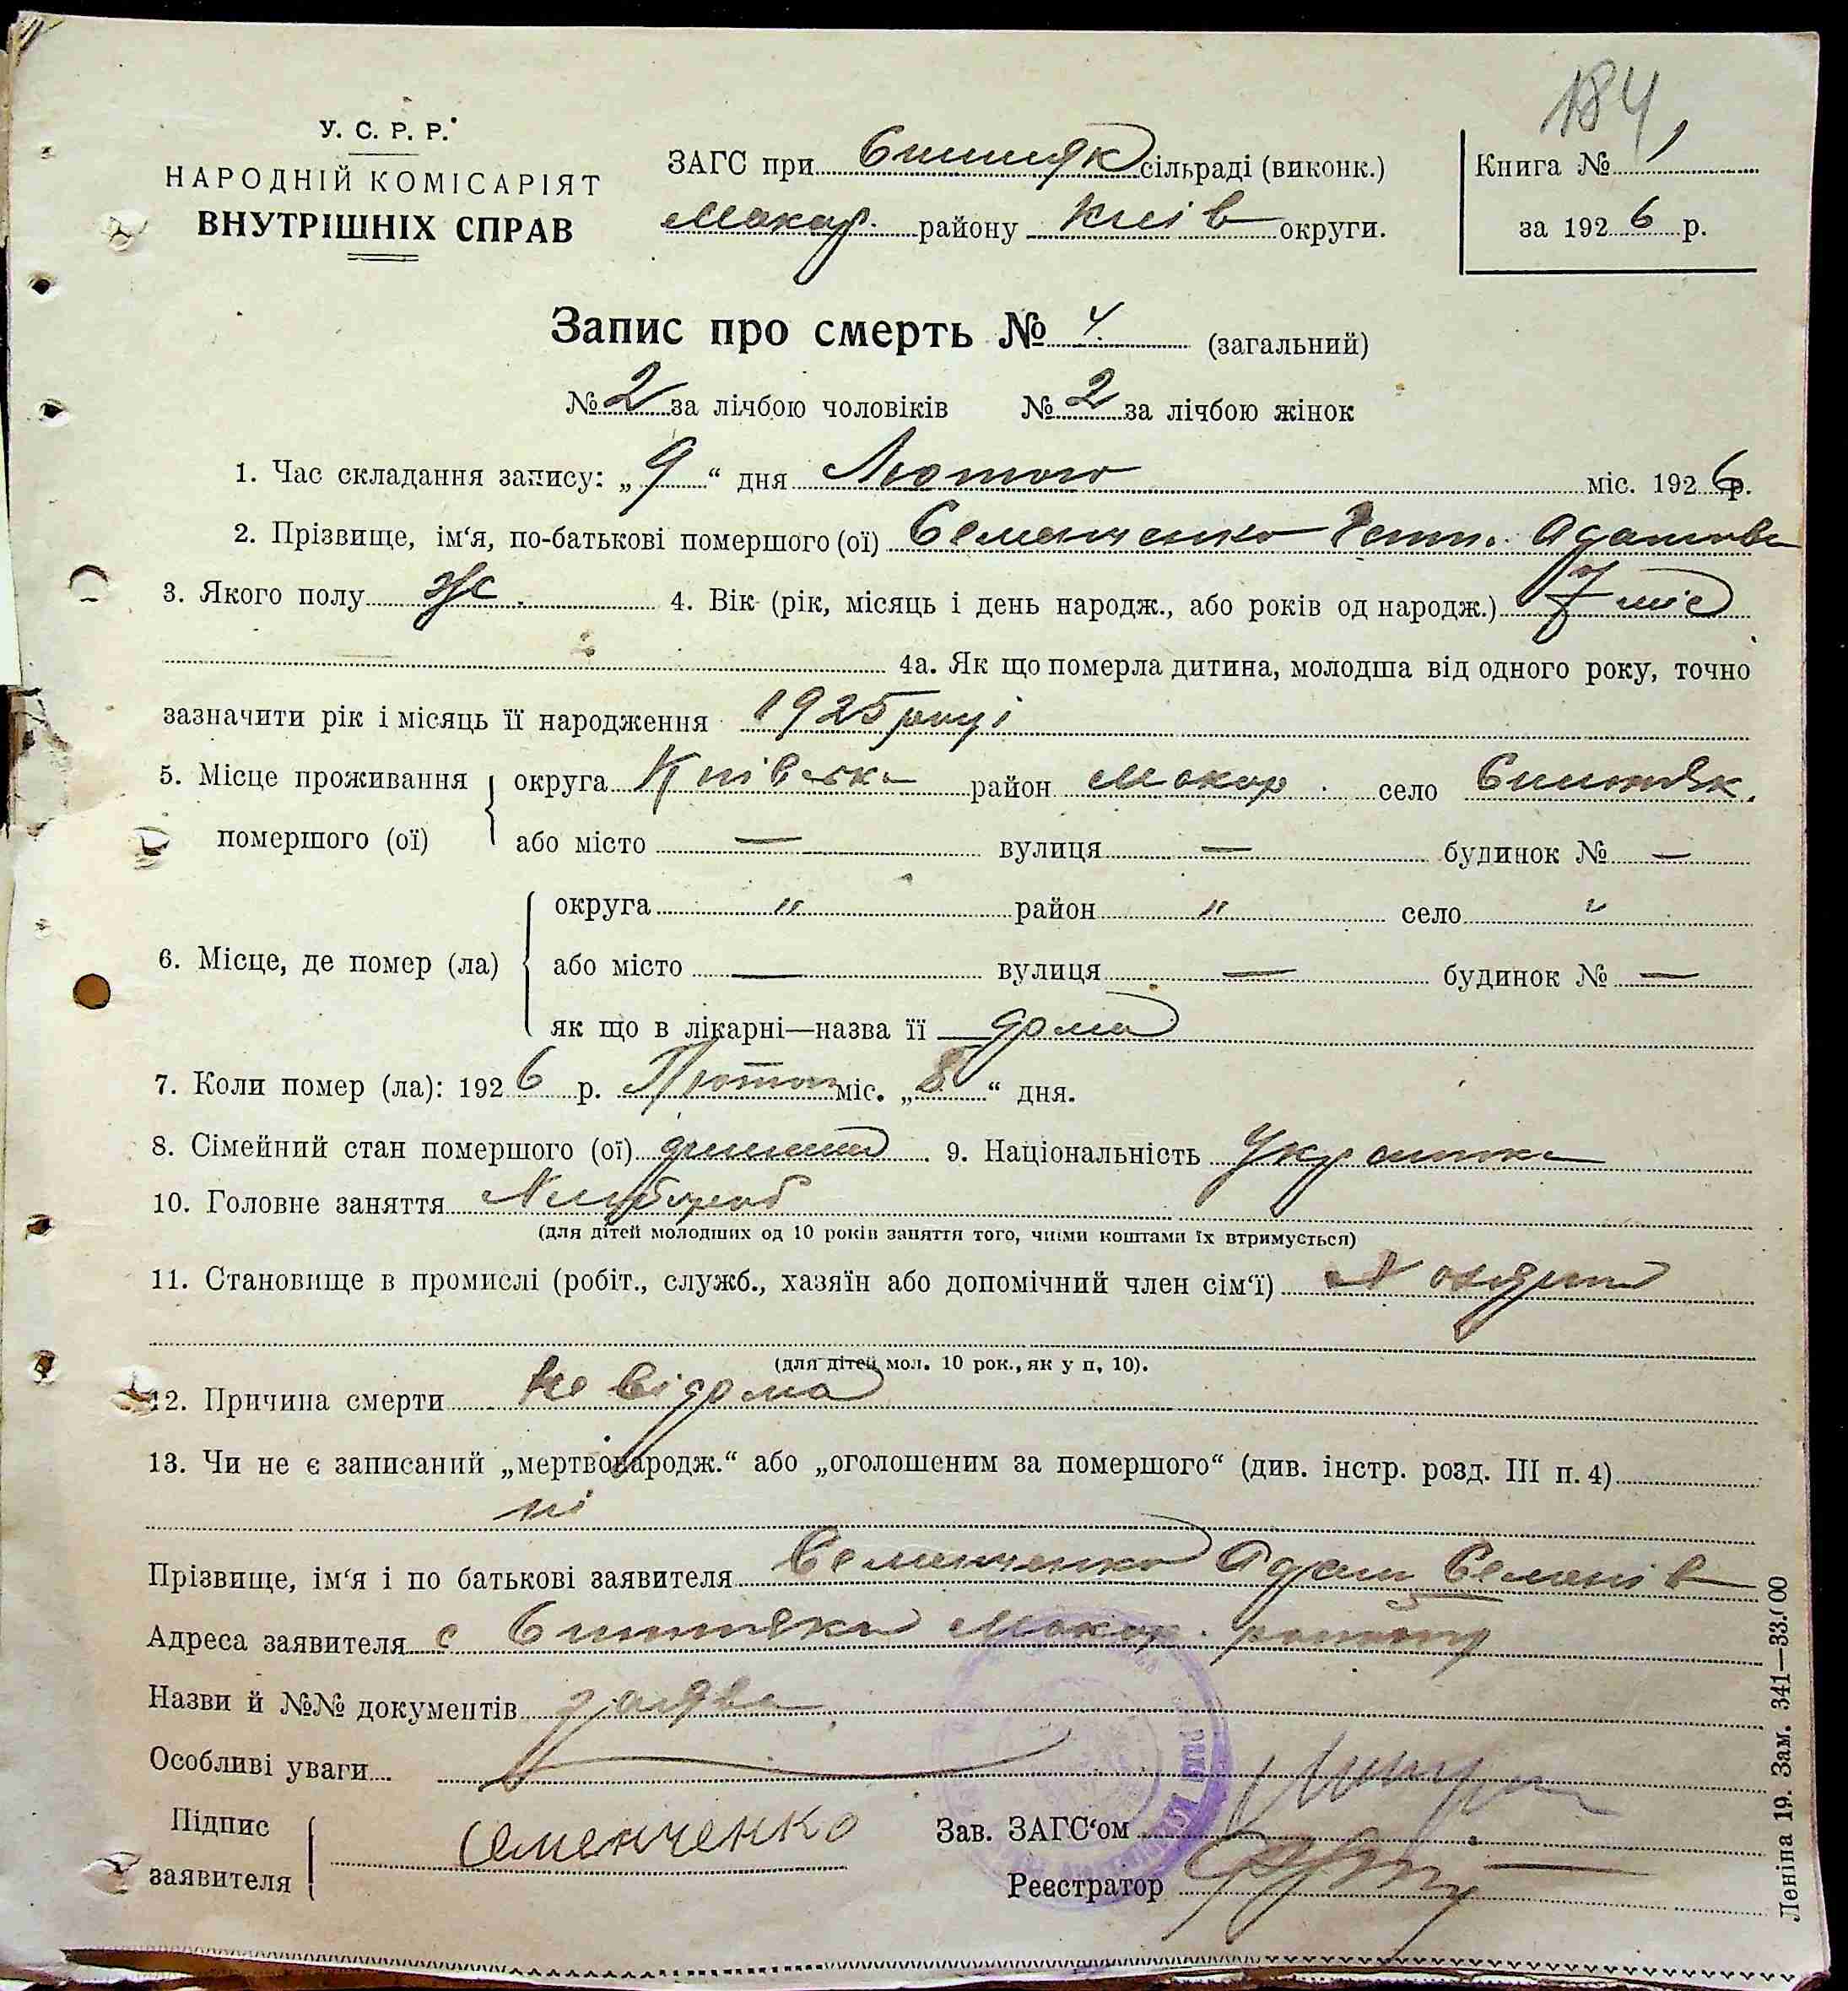 184
У. С. Р. Р.
НАРОДНІЙ КОМІСАРІЯТ
ВНУТРІШНІХ СПРАВ
ЗАГС при Ситняк сільраді (виконк.)
Макар. району Київ округи.
Книга № 1
за 1926 р.
Запис про смерть № 4. (загальний)
№ 2 за лічбою чоловіків № 2 за лічбою жінок
1. Час складання запису: „9“ дня Лютого міс. 1926 р.
2. Прізвище, ім‘я, по-батькові помершого (ої) Семенченко Адамовн
3. Якого полу ж. 4. Вік (рік, місяць і день народж., або років од народж.) 7 міс
4а. Як що померла дитина, молодша від одного року, точно
зазначити рік і місяць її народження 1925 році
5. Місце проживання помершого (ої) округа Київська район Макар. село Ситняк.
або місто — вулиця — будинок № —
6. Місце, де помер (ла) округа " район " село "
або місто — вулиця — будинок № —
як що в лікарні—назва її дома
7. Коли помер (ла): 1926 р. Лютого міс. „8“ дня.
8. Сімейний стан помершого (ої) дитина 9. Національність Українка
10. Головне заняття Хлібороб
(для дітей молодших од 10 років заняття того, чиїми коштами їх втримується)
11. Становище в промислі (робіт., служб., хазяїн або допомічний член сім‘ї)
(для дітей мол. 10 рок., як у п. 10).
12. Причина смерти Не відома
13. Чи не є записаний „мертвонародж.“ або „оголошеним за помершого“ (див. інстр. розд. III п. 4)
ні
Прізвище, ім‘я і по батькові заявителя Семенченко Адам Семенів
Адреса заявителя с Ситняки Макар. району
Назви й №№ документів заява
Особливі уваги
Підпис заявителя Семенченко
Зав. ЗАГС‘ом
Реєстратор
Леніна 19. Зам. 341—33.000